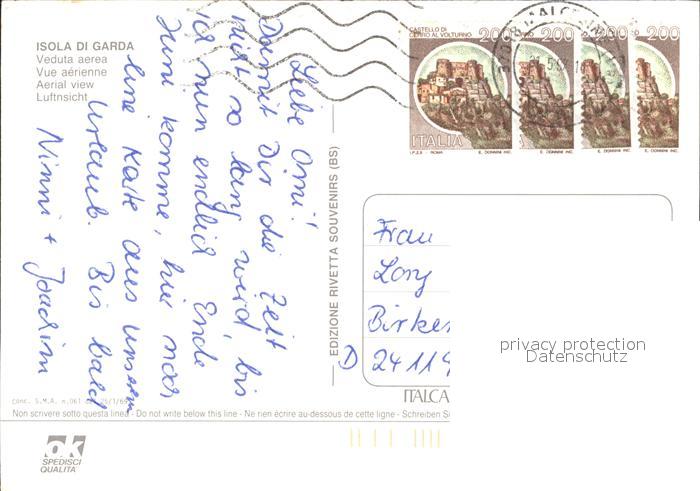 ISOLA DI GARDA
Veduta aerea
Vue aérienne
Aerial view
Luftnsicht
Liebe Omi!
Damit Dir die Zeit
nicht so lang wird, bis
ich nun endlich Ende
Juni komme, hier noch
eine Karte aus unserem
Urlaub. Bis bald
Ninni + Joachim
EDIZIONE RIVETTA SOUVENIRS (BS)
CASTELLO DI
CERRO AL VOLTURNO
200 200 200 200
ITALIA
I.P.Z.S. - ROMA E. DONNINI INC. E. DONNINI INC. E. DONNINI INC. E. DONNINI INC.
Frau
Lony
Birke
D 24119
privacy protection
Datenschutz
ITALCA
conc. S.M.A. n.061 25/1/69
Non scrivere sotto questa linea - Do not write below this line - Ne rien écrire au-dessous de cette ligne - Schreiben S
ok
SPEDISCI
QUALITÀ